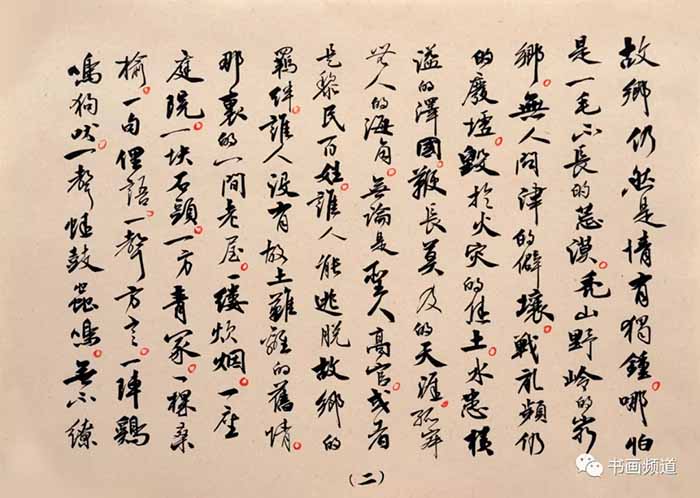 故鄉仍然是情有獨鍾。哪怕
是一毛不長的荒漠。禿山野嶺的窮
鄉。無人問津的僻壤。戰亂頻仍
的廢墟。毀於火灾的焦土。水患橫
溢的澤國。鞭長莫及的天涯。孤
無人的海角。無論是聖人高官。或者
是黎民百姓。誰人能逃脫故鄉的
羈絆。誰人没有故土難離的舊情。
那裏的一間老屋。一缕炊烟。一座
庭院。一块石頭。一方青冢。一棵桑
榆。一句俚語。一聲方言。一陣鷄
鳴狗吠。一聲蛙鼓蟲鳴。無不繚
(二)
书画频道